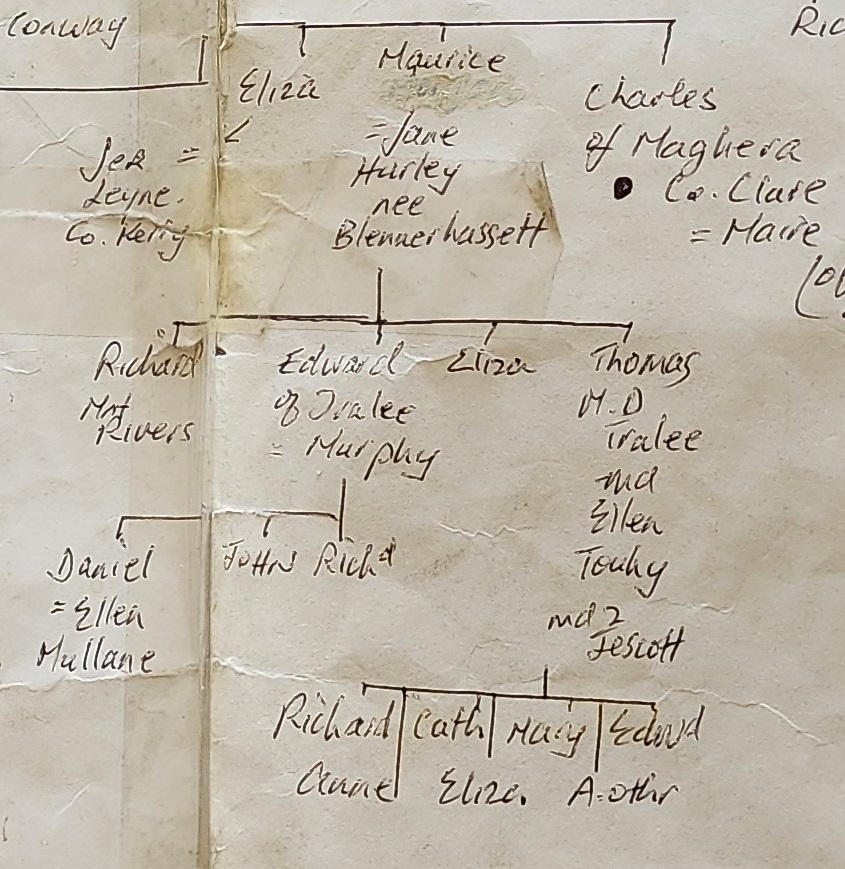 Conway
Ric
Eliza
Maurice
Charles
of Maghera
Co. Clare
= Maire
(ob
Jer =
Leyne.
Co. Kerry
= Jane
Hurley
nee
Blennerhassett
Richard
Mnt
Rivers
Edward
of Tralee
= Murphy
Eliza
Thomas
M.D.
Tralee
md
Ellen
Touhy
md 2
Daniel
= Ellen
Mullane
JOHN
Richd
Richard
Cath
Mary
Edwd
Anne
Eliza